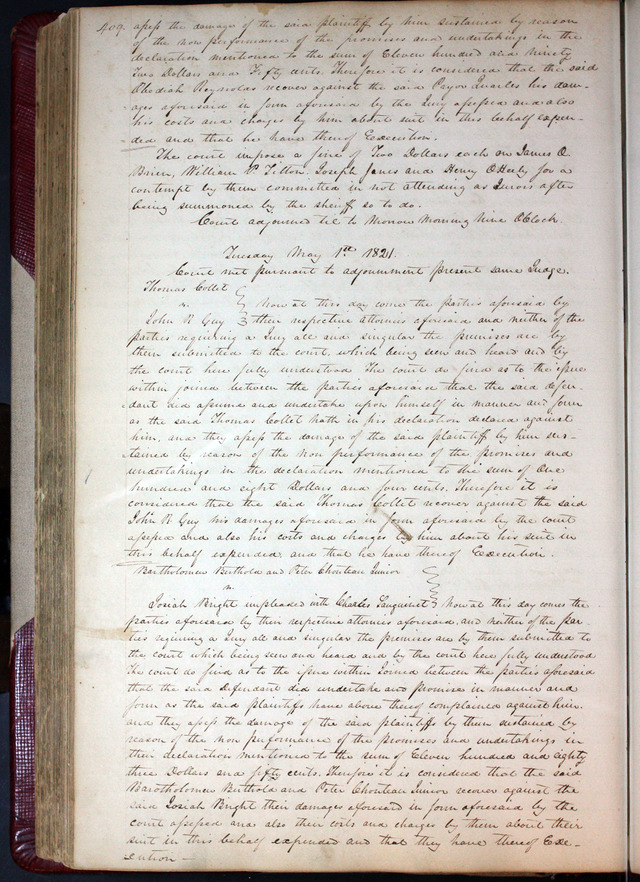 409. assess the damage of the said plaintiff by him sustained by reason
of the non performance of the promises and undertakings in the
declaration mentioned to the sum of Eleven hundred and ninety
two Dollars and Fifty cents. Therefore it is considered that the said
Obediah Reynolds recover against the said Pryor Quarles his dam-
ages aforesaid in form aforesaid by the Jury assessed and also
his costs and charges by him about suit in this behalf expen-
ded and that he have thereof Execution.
The court impose a fine of Two Dollars each on James O
Brien, William P. Joseph Jones and Henry for a
contempt by them committed in not attending as Jurors after
being summoned by the sheriff so to do.
Court adjourned til to Morrow Morning Nine OClock.
Tuesday May 1st 1821.
Court met pursuant to adjournment present same Judge.
Thomas Collet
v.
Now at this day come the parties aforesaid by
John R Guy their respective attornies aforesaid and neither of the
parties requiring a Jury all and singular the premises are by
them submitted to the court. which being seen and heard and by
the court here fully understood The court do find as to the issue
within joined between the parties aforesaid that the said defen-
dant did assume and undertake upon himself in manner and form
as the said Thomas Collet hath in his declaration declared against
him. and they assess the damage of the said plaintiff by him sus-
tained by reason of the non performance of the promises and
undertakings in the declaration mentioned to the sum of One
hundred and eight Dollars and four cents. Therefore it is
considered that the said Thomas Collet recover against the said
John R Guy his damages aforesaid in form aforesaid by the court
assessed and also his costs and charges by him about his suit in
this behalf expended and that he have thereof Execution.
Bartholomew Berthold and Peter Chouteau Junior
v.
Josiah Bright impleaded with Charles Sanguinet Now at this day comes the
parties aforesaid by their respective attornies aforesaid, and neither of the par-
ties requiring a Jury all and singular the premises are by them submitted to
the court which being seen and heard and by the court here fully understood
The court do find as to the issue within Joined between the parties aforesaid
that the said Defendant did undertake and promise in manner and
form as the said plaintiffs have above thereof complained against him.
and they assess the damage of the said plaintiffs by them sustained by
reason of the non performance of the promises and undertakings in
their declaration mentioned to the sum of Eleven hundred and eighty
three Dollars and fifty cents. Therefore it is considered that the said
Barotholomew Berthold and Peter Chouteau Junior recover against the
said Josiah Bright their damages aforesaid in form aforesaid by the
court assessed and also their costs and charges by them about their
suit in this behalf expended and that they have thereof Exe-
cution —